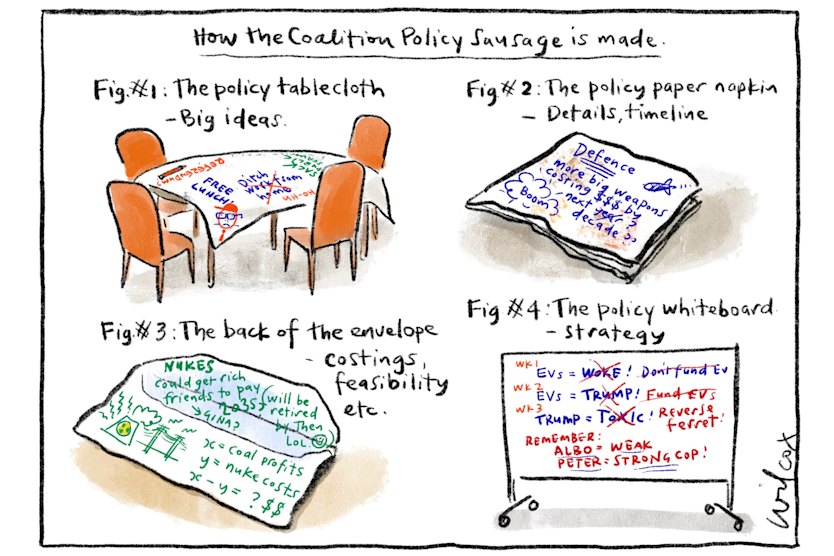 How the Coalition Policy Sausage is made.
Fig.#1: The policy tablecloth
- Big ideas.
REFERENDUM?
FREE
LUNCH
Ditch
work from
home
NUH-OH
Fig#2: The policy paper napkin
- Details, timeline
Defence
more big weapons
costing $$$ by
next year?
decade??
Boom
Fig.#3: The back of the envelope
- costings,
feasibility
etc.
NUKES
could get rich
friends to pay
GINA?
2035?
(will be
retired
by then
LOL
x = coal profits
y = nuke costs
x - y = ? $$
Fig #4: The policy whiteboard
- strategy
WK1
EVs = WOKE! Don't fund EV
WK2
EVs = TRUMP! Fund EVs
WK3
TRUMP = TOXIC! Reverse
ferret!
REMEMBER:
ALBO = WEAK
PETER = STRONG COP!
wilcox